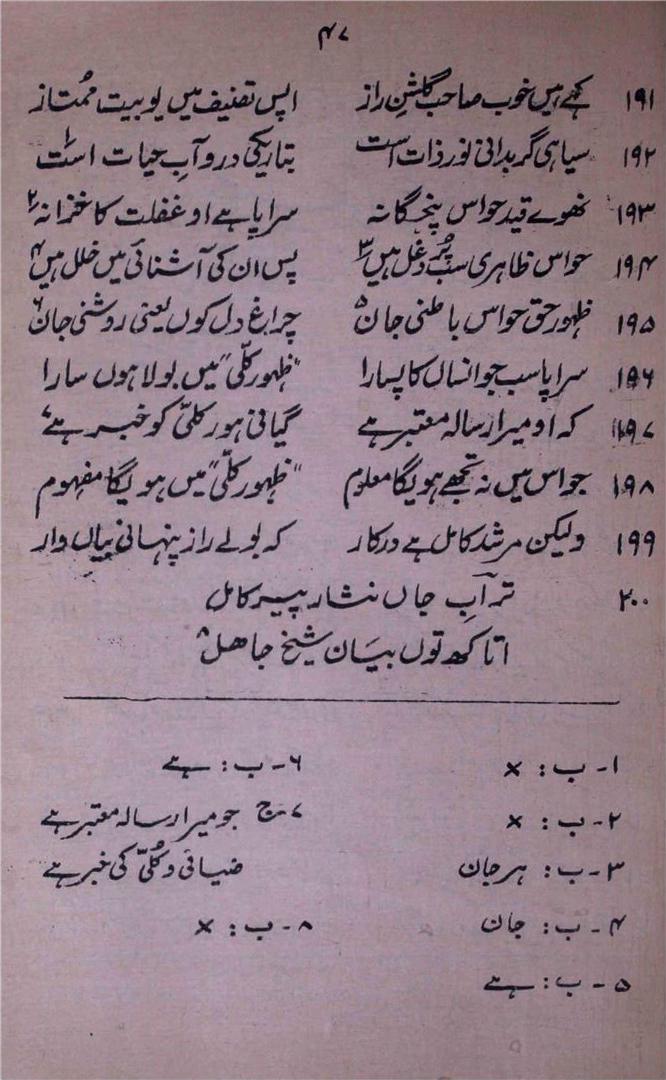 ۴۷
۱۹۱ کہے ہیں خوب صاحب گلشنِ راز اپس تصنیف میں یو بیت مُمتاز
۱۹۲ سیاہی گر بدانی نور ذات است بتاریکی درو آبِ حیات است۱
۱۹۳ نھوے قید حواس پنجگانہ سراپا ہے او غفلت کا خزانہ۲
۱۹۴ حواس ظاہری سب پُر دغل ہیں۳ پس ان کی آشنائی میں خلل ہیں۴
۱۹۵ ظہور حق حواس باطنی جان۵ چراغ دل کوں یعنی روشنی جان۶
۱۹۶ سراپا سب جو انساں کا پسارا "ظہور کلّی" میں بولا ہوں سارا
۱۹۷ کہ او میرا رسالہ معتبر ہے گیانی ہور کلیّ کو خبر ہے۷
۱۹۸ جو اس میں نہ تجھے ہویگا معلوم "ظہور کلّی" میں ہویگا مفہوم
۱۹۹ ولیکن مرشد کامل ہے درکار کہ بولے راز پنہانی بیاں وار
۲۰۰ تراب جاں نثار پیر کامل
اتا کھ توں بیان شیخ جاھل۸
۱ - ب : × ۶ - ب : ہے
۲ - ب : × ۷ - ج جو میرا رسالہ معتبر ہے
۳ - ب : ہر جان ضیائی و کُلیّ کی خبر ہے
۴ - ب : جان ۸ - ب : ×
۵ - ب : ہے